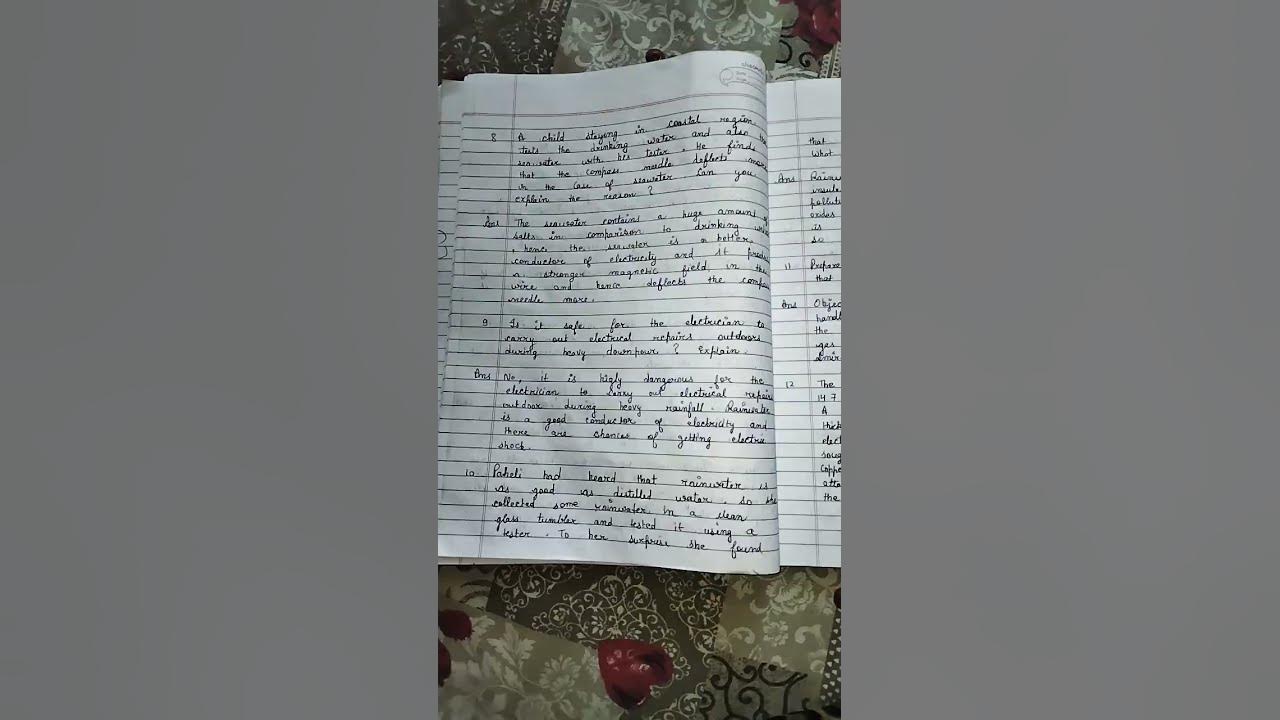 8 A child staying in coastal region
tests the drinking water and also the
seawater with his tester. He finds
that the compass needle deflects more
in the case of seawater Can you
explain the reason?
Ans The seawater contains a huge amount
salts in comparison to drinking
, hence the seawater is a better
conductor of electricity and it
a stronger magnetic field in the
wire and hence deflects the
needle more.
9. Is it safe for the electrician to
carry out electrical repairs outdoors
during heavy downpour? Explain.
Ans No, it is higly dangerous for the
electrician to carry out electrical repairs
outdoor during heavy rainfall. Rainwater
is a good conductor of electricity and
there are chances of getting electric
shock.
10. Paheli had heard that rainwater is
as good as distilled water. So she
collected some rainwater in a clean
glass tumbler and tested it using a
tester. To her surprise she found
that
what
Ans
is
so
11 Prepare
that
Ans
the
12 The
14.7
A
the